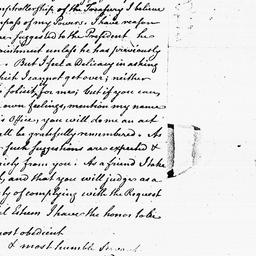 mptrollership of the Treasury I believe
mpass of my Powers. I have reason
er suggested to the President he
ointment unless he has previously
. But I feel a Delicacy in asking
hich I cannot get over; neither
solicit for me; but if you can,
own feelings, mention my name
is Office, you will do me an act
ll be gratefully remembered. As
such suggestions are expected &
ively from you. As a friend I take
, and that you will judge as a
ty of complying with the Request
l Esteem I have the honor to be
most obedient
& most humble Servant